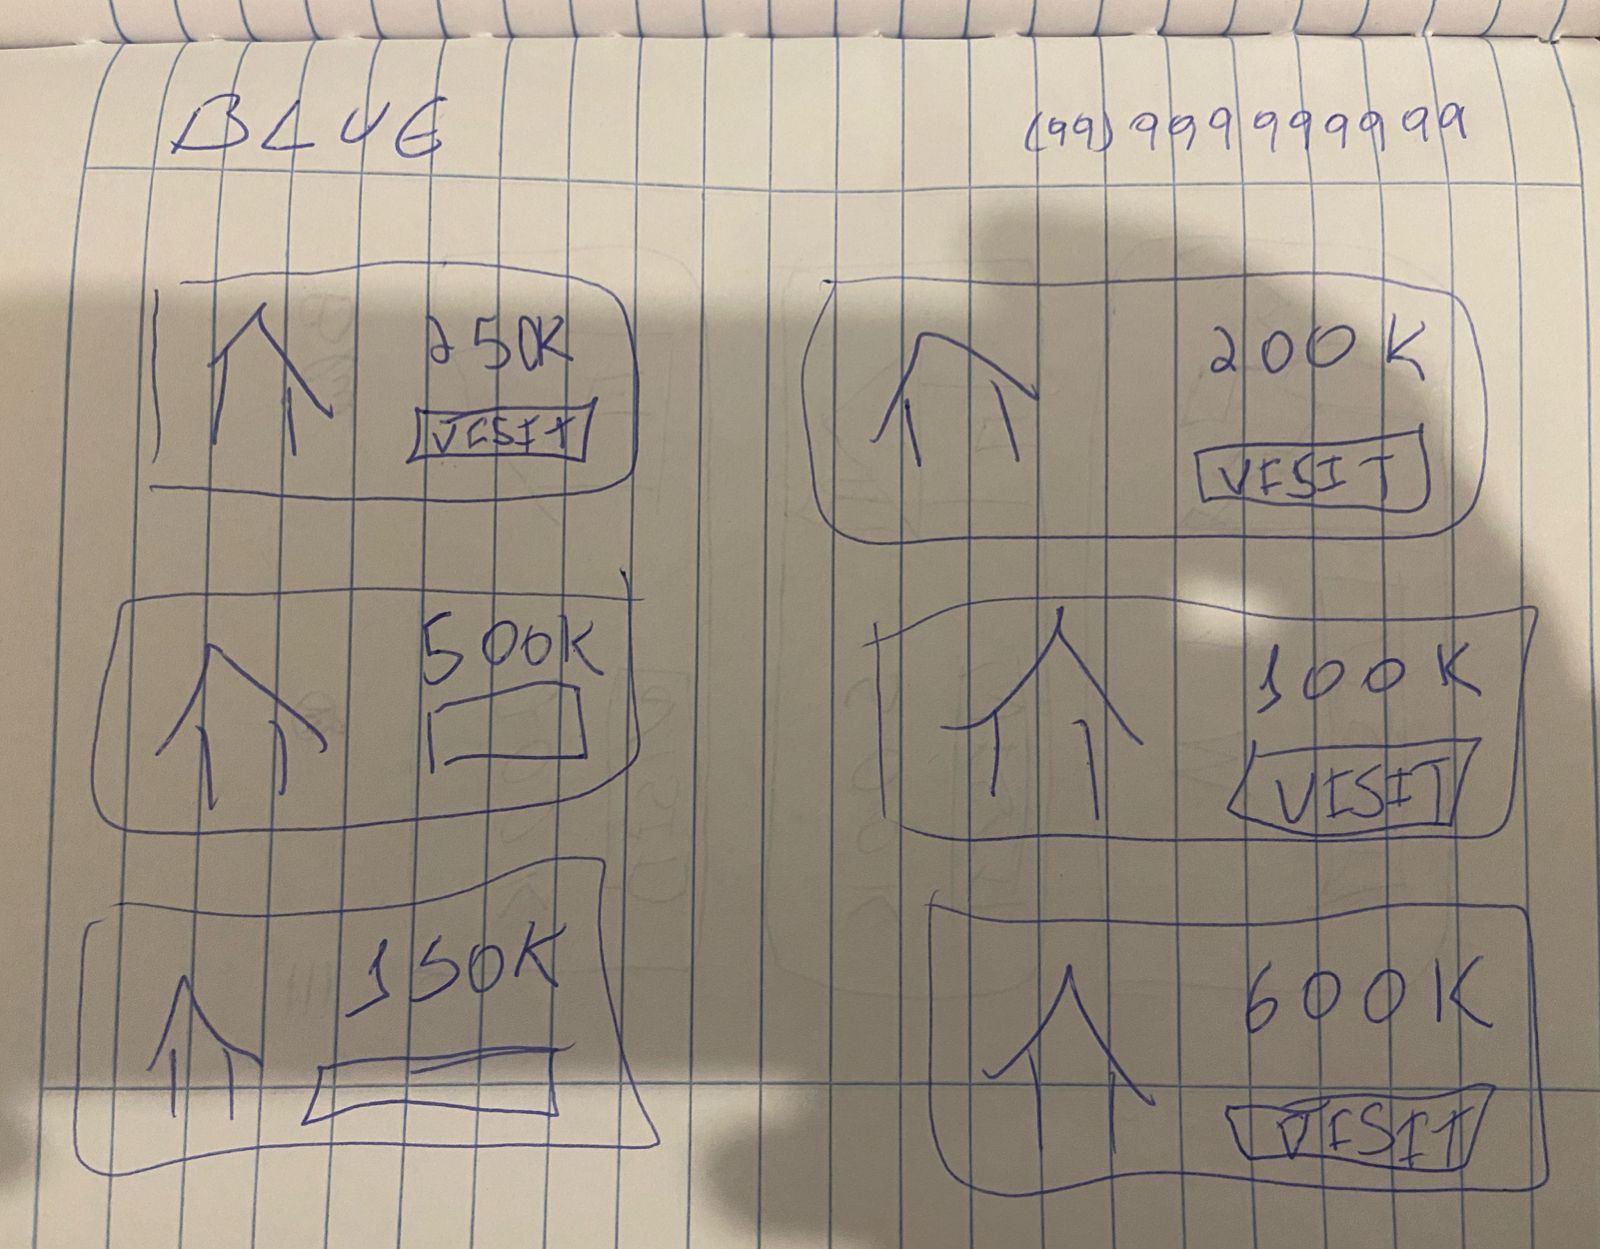 BLUE
(99) 999999999
250K
VISIT
200K
VISIT
500K
100K
VISIT
150K
600K
VISIT